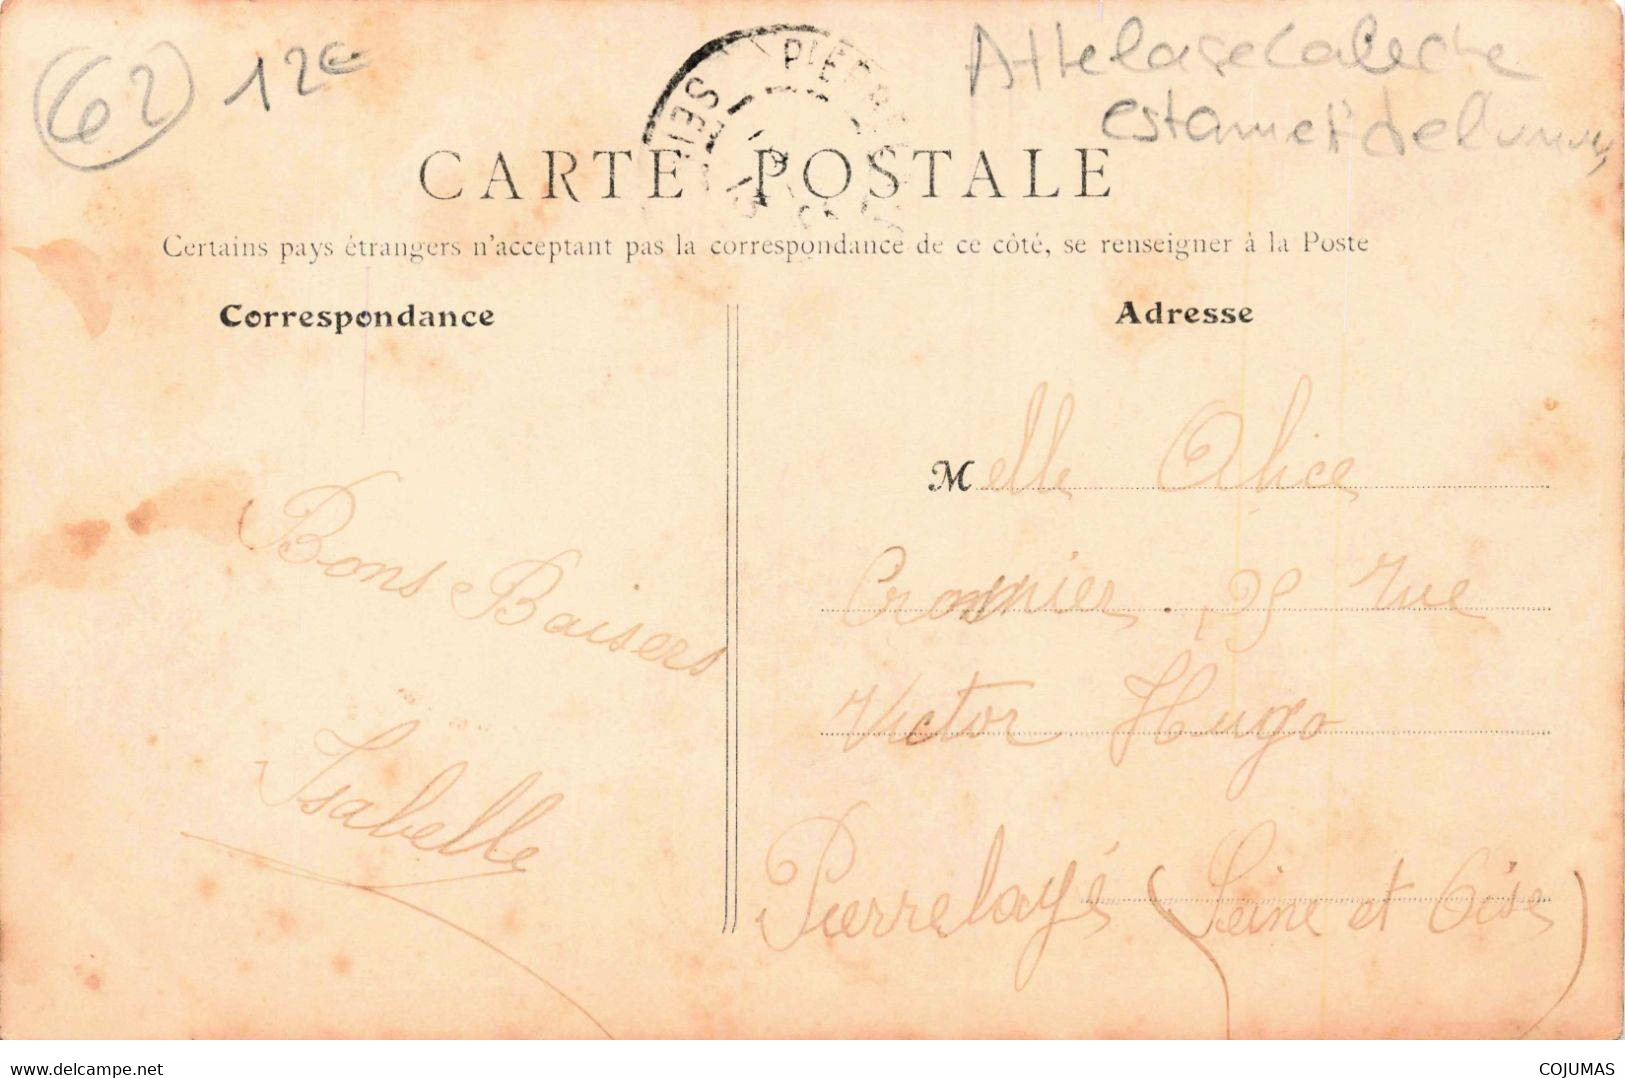 62
12€
Attelage Caleche
estaminet de l'univers
PIERRELAYE
SEINE
CARTE POSTALE
Certains pays étrangers n'acceptant pas la correspondance de ce côté, se renseigner à la Poste
Correspondance
Adresse
Bons Baisers
Isabelle
Melle Alice
Cronnier. 25 rue
Victor Hugo
Pierrelayé (Seine et Oise)
www.delcampe.net
COJUMAS